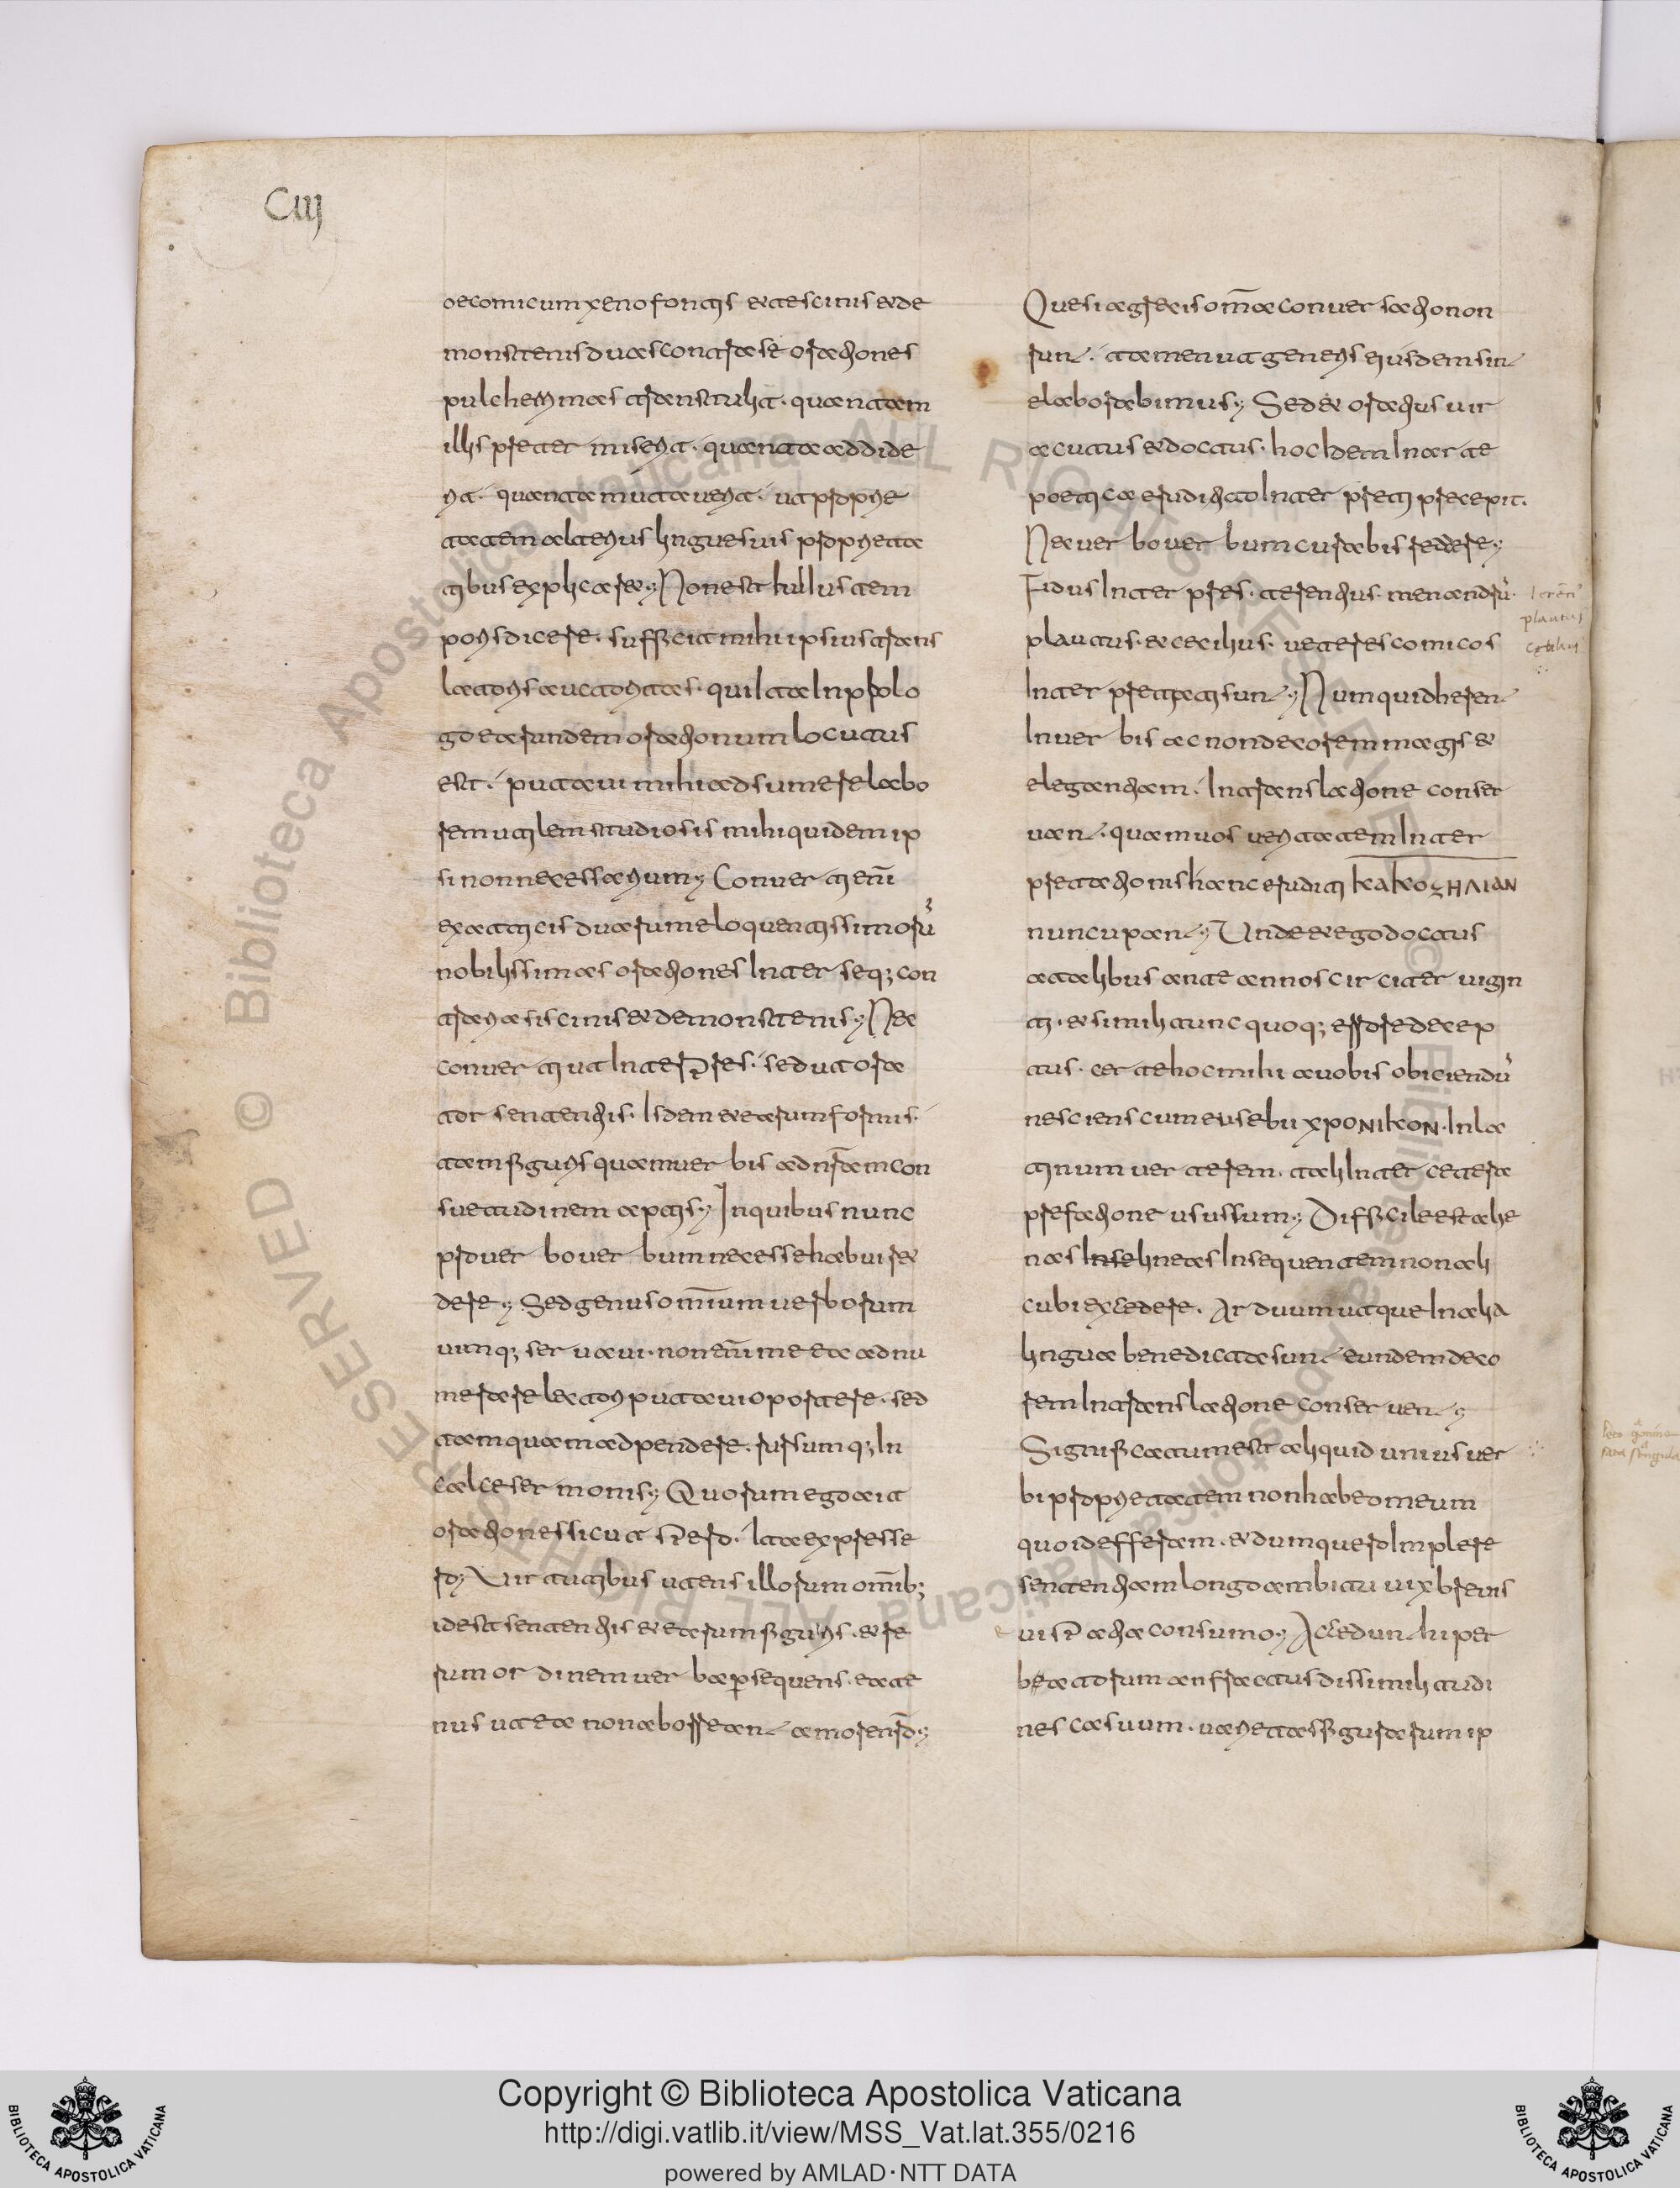 Ciij
oecomicum xenofontis & aescinis & de
monstenis duas contra se orationes
pulcherrimas transtulit. quantam
illis preter miserit. quanta addide
rit. quanta mutaverit. ut proprie
tatem alterius lingue suis proprieta
tibus explicar&; Non est hullus tem
poris dicere. sufficit mihi ipsius trans
latoris auctoritas. qui Ita In prolo
go earundem orationum locutus
est. putavi mihi ad sumere labo
rem utilem studiosis mihi quidem ip
si non necessarium; Converti eni̅
ex atticis duarum eloquentissimoru̅
nobilissimas orationes Inter seq; con
trarias iscinis & demonstenis; Nec
converti ut Interp̅res. sed ut ora
tor sententiis. Isdem & earum formis.
tam figuris quam verbis ad nr̅am con
suetudinem aptis; In quibus nunc
pro verbo verbum necesse habui red
dere; Sed genus om̅ium verborum
vimq; servavi. non eni̅ me ea ad nu
merare lectori putavi oportere. sed
tamquam adpendere. rursumq; In
calce sermonis; Quorum ego ait
orationes sicut sp̅ero. Ita expresse
ro; Virtutibus utens illorum om̅ib;
id est sententiis & earum figuris. & re
rum ordinem verba p̱sequens. eate
nus ut ea non aborreant a more nr̅o;
Que si a grecis om̅a conversa non
sunt. tamen ut generis eiusdem sint
elaborabimus; Sed & oratius vir
acutus & doctus. hoc Idem In arte
poetica erudito Interpreti precepit.
Nec verbo verbum curabis reddere;
Fidus Interpres. terentius. menandru̅.
plautus. & cecilius. veteres comicos
Interpretati sunt; Numquid herent
In verbis ac non decorem magis &
elegantiam. In translatione conser
vant. quam vos veritatem Inter
pretationis hanc eruditi KAKOζΗΛΙΑΝ
nuncupant; Unde & ego doctus
a talibus ante annos circiter vigin
ti. & simili tunc quoq; errore decep
tus. certe hoc mihi a vobis obiciendu̅
nesciens cum eusebii χΡΟΝΙΚΟΝ. In la
tinum verterem. tali Inter cetera
prefatione usus sum; Difficile est alie
nas Inse lineas Insequentem non ali
cubi excedere. Arduum ut que In alia
lingua bene dicta sunt eundem deco
rem In translatione conservent;
Significatum est aliquid unius ver
bi proprietatem non habeo meum
quo id efferam. & dum quero Implere
sententiam longo ambitu vix brevis
vi sp̅atia consumo; Accedunt hiper
bata torum anfractus dissimilitudi
nes casuum. varietas figurarum ip
plautus
Copyright © Biblioteca Apostolica Vaticana
http://digi.vatlib.it/view/MSS_Vat.lat.355/0216
powered by AMLAD·NTT DATA
BIBLIOTECA APOSTOLICA VATICANA
BIBLIOTECA APOSTOLICA VATICANA
© Biblioteca Apostolica Vaticana ALL RIGHTS RESERVED